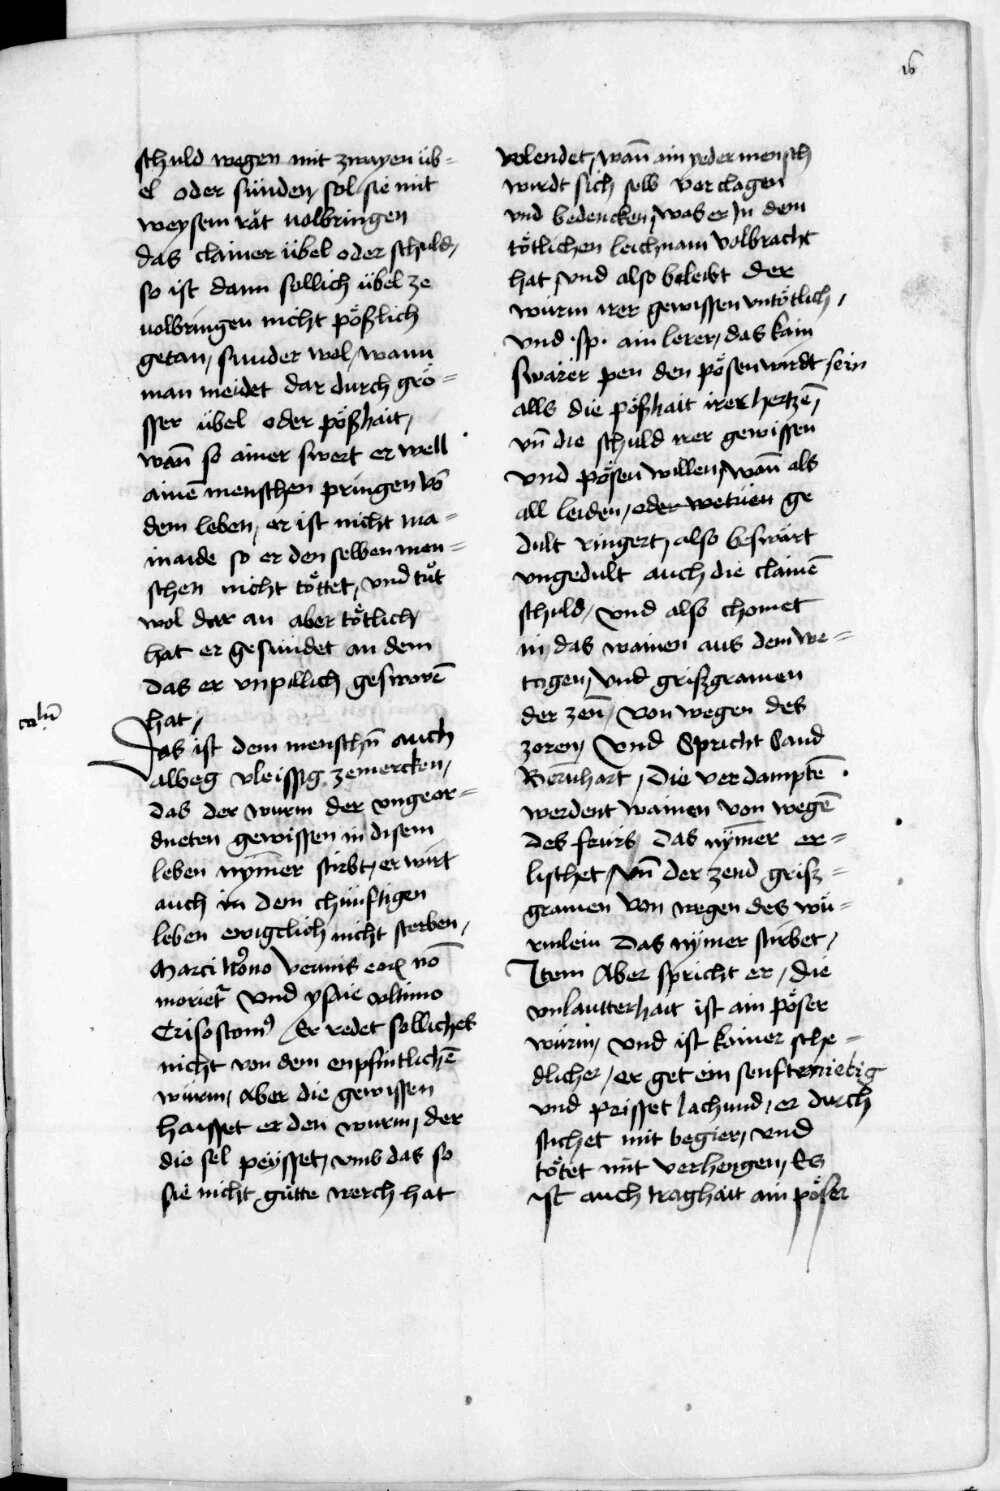 schuld wegen mit zwayen üb=
el oder sünden, sol sie mit
weysem rät uolbringen
das clainer übel oder schuld,
so ist dann sollich übel ze
uolbringen nicht pößlich
getan, sunder wol, wann
man meidet dar durch grö=
sser übel oder pößhait,
wan̄ so ainer swert er well
ainē menschen pringen võ
dem leben, er ist nicht ma=
inaide so er den selben men=
schen nicht töttet, vnd tüt
wol dar an aber tötlich
hat er gesündet an dem
das er vnpillich gesworē
hat,
Das ist dem menschn̄ auch
alweg vleissig zemercken,
das der wurm der vngeor=
dneten gewissen in disem
leben nym̄er stirbt, er wirt
auch in dem chünftigen
leben ewigclich nicht sterben,
Marci nono vermis eorꝝ nō
morietr̄ vnd ysaie vltimo
Crisostomꝰ Er redet sollichs
nicht von dem enpfintlichē
würm, Aber die gewissen
haisset er den wurm, der
die sel peysset, vmb das so
sie nicht gütte werch hat
volendet, wan̄ ain yeder mensch
wirdt sich selb verclagen
vnd bedencken, was er Jn dem
tötlichen leichnam volbracht
hat, vnd also beleibt der
würm irer gewissen vntötlich,
vnd .sp. ain lerer, das kain
swärer pen den pösen wirdt sein
alls die pößhait irer hertzē,
vn̄ die schuld irer gewissen
vnd pösen willen, wan̄ als
all leiden, oder wetüen ge
dult ringert, also beswärt
vngedult auch die clainē
schuld, vnd also chomet
in das wainen aus dem we=
tagen, vnd grißgramen
der zen̄, von wegen des
zoren, vnd Spricht Sand
Bernhart, Die verdamptē
werdent wainen von wegē
des feurs das nym̄er er=
lischet, vn̄ der zend griß=
gramen von wegen des wü=
rmlein das nymer stirbet,
Item Aber spricht er, die
vnlautterhait ist ain pöser
würm, vnd ist kainer sche=
dlicher, er get ein senftmietig
vnd prisset lachund, er durch
stichet mit begier, vnd
tötet mit verhengen, Es
ist auch traghait ain pöser